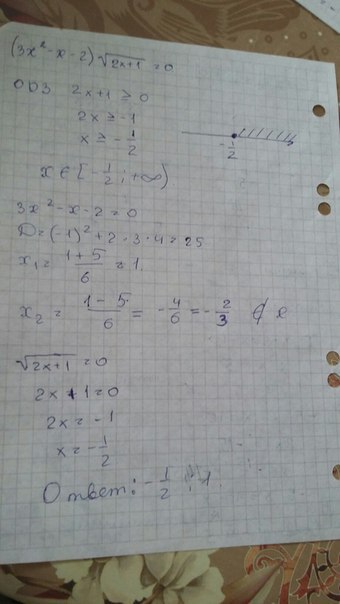 (3x² - x - 2) √(2x+1) = 0
ОДЗ 2x+1 ≥ 0
2x ≥ -1
x ≥ -1/2
-1/2
x ∈ [-1/2; +∞)
3x² - x - 2 = 0
D = (-1)² + 2·3·4 = 25
x₁ = (1+5)/6 = 1
x₂ = (1-5)/6 = -4/6 = -2/3 ∉
√(2x+1) = 0
2x + 1 = 0
2x = -1
x = -1/2
Ответ: -1/2; 1.